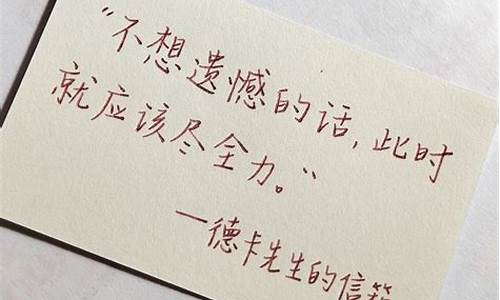 “不想遗憾的话,此时
就应该尽全力。”
—德卡先生的信箱